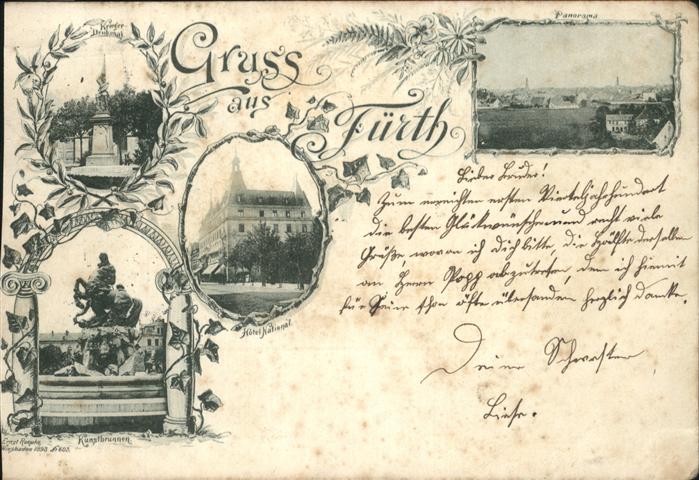 Krieger-
Denkmal
Gruss
aus
Fürth
Panorama
Hôtel National.
Kunstbrunnen
Wiesbaden 1898. No 603.
Lieber Bruder!
Zum erreichten ersten Vierteljahrhundert
die besten Glückwünsche und recht viele
Grüße wovon ich dich bitte die Hälfte derselben
an Herrn Popp abzutreten, dem ich hiermit
für seine schon öfte übersanden herzlich danke.
Deine Schwester
Liese.